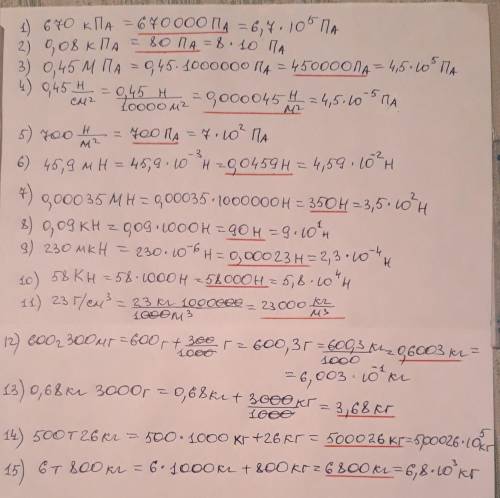 1) 670 кПа = 670000 Па = 6,7 · 10⁵ Па
2) 0,08 кПа = 80 Па = 8 · 10 Па
3) 0,45 М Па = 0,45 · 1000000 Па = 450000 Па = 4,5 · 10⁵ Па
4) 0,45 Н/см² = 0,45 Н/10000 м² = 0,000045 Н/м² = 4,5 · 10⁻⁵ Па
5) 700 Н/м² = 700 Па = 7 · 10² Па
6) 45,9 мН = 45,9 · 10⁻³ Н = 0,0459 Н = 4,59 · 10⁻² Н
7) 0,00035 МН = 0,00035 · 1000000 Н = 350 Н = 3,5 · 10² Н
8) 0,09 кН = 0,09 · 1000 Н = 90 Н = 9 · 10¹ Н
9) 230 мкН = 230 · 10⁻⁶ Н = 0,00023 Н = 2,3 · 10⁻⁴ Н
10) 58 Кн = 58 · 1000 Н = 58000 Н = 5,8 · 10⁴ Н
11) 23 Г/см³ = 23 кг 1000000/1000 м³ = 23000 кг/м³
12) 600г 300мг = 600г + 300/1000 г = 600,3 г = 600,3 кг/1000 = 0,6003 кг =
= 6,003 · 10⁻¹ кг
13) 0,68 кг 3000 г = 0,68 кг + 3000/1000 кг = 3,68 кг
14) 500т 26 кг = 500 · 1000 кг + 26 кг = 500026 кг = 5,00026 · 10⁵ кг
15) 6т 800 кг = 6 · 1000 кг + 800 кг = 6800 кг = 6,8 · 10³ кг